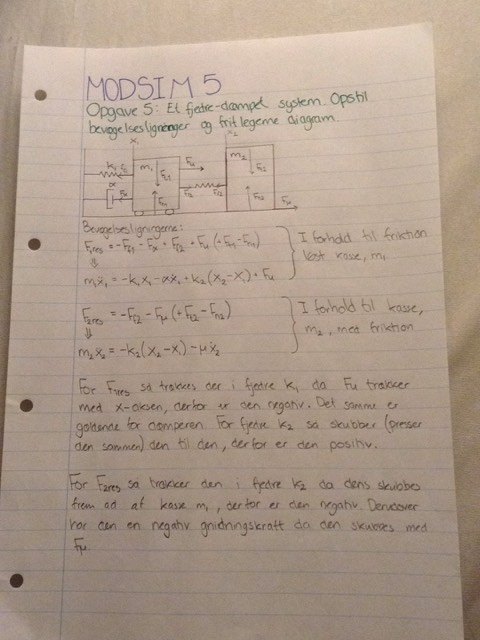 MODSIM 5
Opgave 5: Et fjedre-dæmpet system. Opstil
bevægelsesligninger og frit legeme diagram.
x₁ x₂
k₁ m₁ Fu m₂
α Fα
Bevægelsesligningerne:
F1res = -Ff1 - Fα + Ff2 + Fu (+Ft1 - Fn1)
⇓
m₁ẍ₁ = -k₁x₁ - αẋ₁ + k₂(x₂-x₁) + Fu
I forhold til friktion
løst kasse, m₁
F2res = -Ff2 - Fμ (+Ft2 - Fn2)
⇓
m₂ẍ₂ = -k₂(x₂-x₁) - μẋ₂
I forhold til kasse,
m₂, med friktion
For F1res så trækkes der i fjedre k₁ da Fu trækker
med x-aksen, derfor er den negativ. Det samme er
gældende for dæmperen. For fjedre k₂ så skubber (presser
den sammen) den til den, derfor er den positiv.
For F2res så trækker den i fjedre k₂ da dens skubbes
frem ad af kasse m₁, derfor er den negativ. Derudover
har den en negativ gnidningskraft da den skubbes med
Fμ